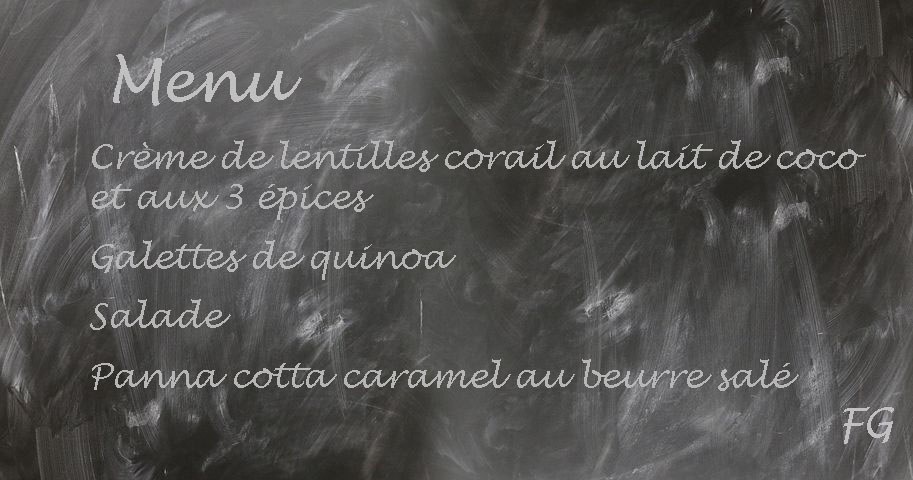 Menu
Crème de lentilles corail au lait de coco
et aux 3 épices
Galettes de quinoa
Salade
Panna cotta caramel au beurre salé
FG